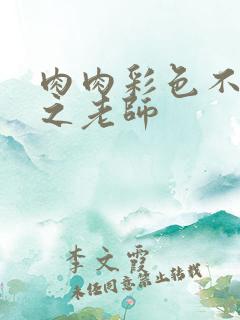 肉肉彩色不
之老师
李文霞
未经同意禁止转载